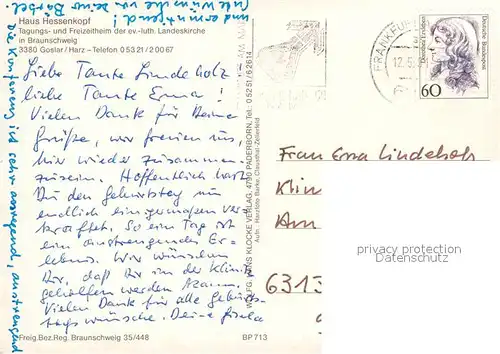 Haus Hessenkopf
Tagungs- und Freizeitheim der ev.-luth. Landeskirche
in Braunschweig
3380 Goslar / Harz – Telefon 0 53 21 / 2 00 67
Liebe Tante Lindeholz
liebe Tante Erna!
Vielen Dank für Deine
Grüße, wir freuen uns,
hier wieder zusammen-
zusein. Hoffentlich hast
Du den Geburtstag nun
endlich einigermaßen ver-
kraftet. So ein Tag ist
ein anstrengendes Er-
lebnis. Wir wünschen
Dir, daß Dir in der Klinik
geholfen werden
Vielen Dank für alle Geburts-
tagswünsche. Deine Gisela
Die Konferenz ist sehr anregend, anstrengend
und ermutigend!
Alle Wünsche
Freig.Bez.Reg. Braunschweig 35/448
BP 713
WOLFG. HANS KLOCKE VERLAG, 4790 PADERBORN, Tel.: 0 52 51 / 6 26 14
Aufn.: Harzfoto Barke, Clausthal-Zellerfeld
FRANKFU
12.5.
Deutsche Bundespost
60
Frau Erna Lindeholz
Klin
Am
6313
privacy protection
Datenschutz